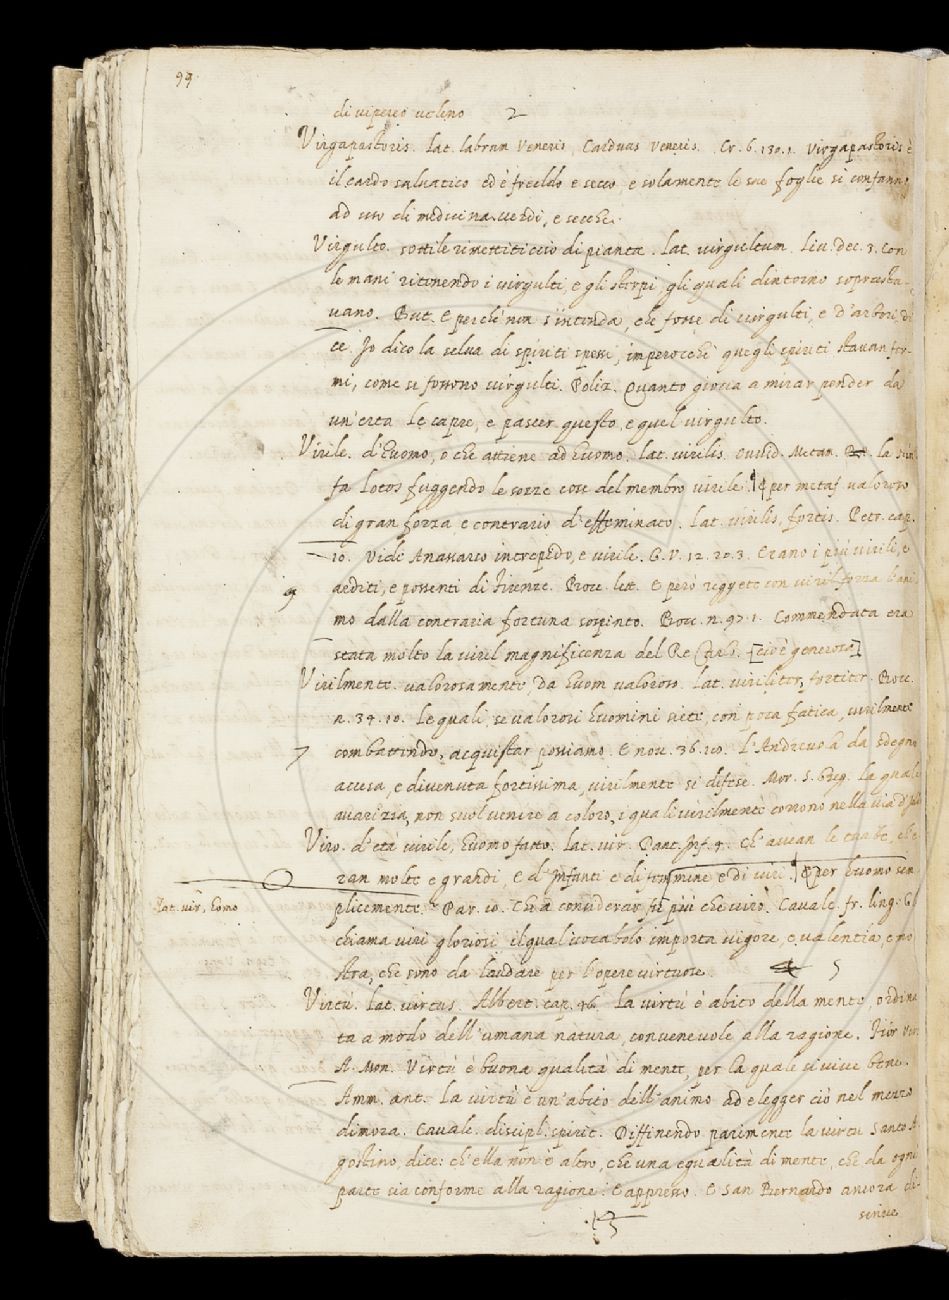 99.
di vipereo veleno 2
Virgapastoris. Lat. labrum Veneris, Carduus Veneris. Cr. 6. 130. 1. Virgapastoris è
il cardo salvatico ed è freddo e secco e solamente le sue foglie si confanno
ad uso di medicina verdi, e secche.
Virgulto. sottile rimettiticcio di pianta. Lat. virgultum. Liv. Dec. 3. Con
le mani ritenendo i virgulti, e gli sterpi, gli quali dintorno soprasta-
vano. But. E perchè non s'intenda, che fosse di virgulti, e d'arbori, di
ce. Io dico la selva di spiriti spessi, imperocchè quegli spiriti stavan fer-
mi, come se fossono virgulti. Poliz. Quanto giova a mirar pender da
un'erta Le capre, e pascer questo, e quel virgulto.
Virile. d'huomo, o che attiene ad huomo. Lat. virilis. Ovvid. Metam. la Nin
fa Lotos fuggendo le sozze cose del membro virile. ¶ E per metaf. valoroso
di gran forza e contrario d'effeminato. Lat. virilis, fortis. Petr. cap.
10. Vidi Anassarco intrepido, e virile. G. V. 12. 20. 3. Erano i più virili, e
arditi, e possenti di Firenze. Bocc. let. E però reggete con viril forza l'ani
9 mo dalla contraria fortuna sospinto. Bocc. n. 97. 1. Commendata era
stata molto la viril magnificenza del Re [cioè generosa]
Virilmente. valorosamente, da huom valoroso. Lat. viriliter, fortiter. Bocc.
n. 34. 10. Le quali, se valorosi huomini siete, con poca fatica, virilmente
7 combattendo, acquistar possiamo. E nov. 36. 20. L'Andrevola da sdegno
accesa, e divenuta fortissima, virilmente si difese. Mor. S. Greg. la quale
avarizia, non suol venire a coloro, i quali virilmente corrono nella via d'Iddio
Viro. d'età virile, huomo fatto. Lat. vir. Dant. Inf. 4. Ch' avean le turbe, ch'e
ran molte e grandi, E d'Infanti e di femmine e di viri. ¶ E per huomo sem
Lat. vir, homo plicemente. Par. 10. Che a considerar fu più che viro. Cavalc. fr. ling. Gli
chiama viri gloriosi il qual vocabolo importa vigore, e valentia, e mo
stra, che sono da laudare per l'opere virtuose. 5
Virtù. Lat. virtus. Albert. cap. 46. La virtù è abito della mente, ordina
ta a modo dell'umana natura, convenevole alla ragione. Fior. Vir.
A. Mon. Virtù è buona qualità di mente, per la quale si vive bene.
Amm. ant. La virtù è un'abito dell'animo ad elegger ciò nel mezzo
dimora. Cavalc. discipl. spirit. Diffinendo parimente la virtù Santo A-
gostino, dice: ch'ella non è altro, che una equalità di mente, che da ogni
parte sia conforme alla ragione. E appresso. E San Bernardo ancora di-
scrive